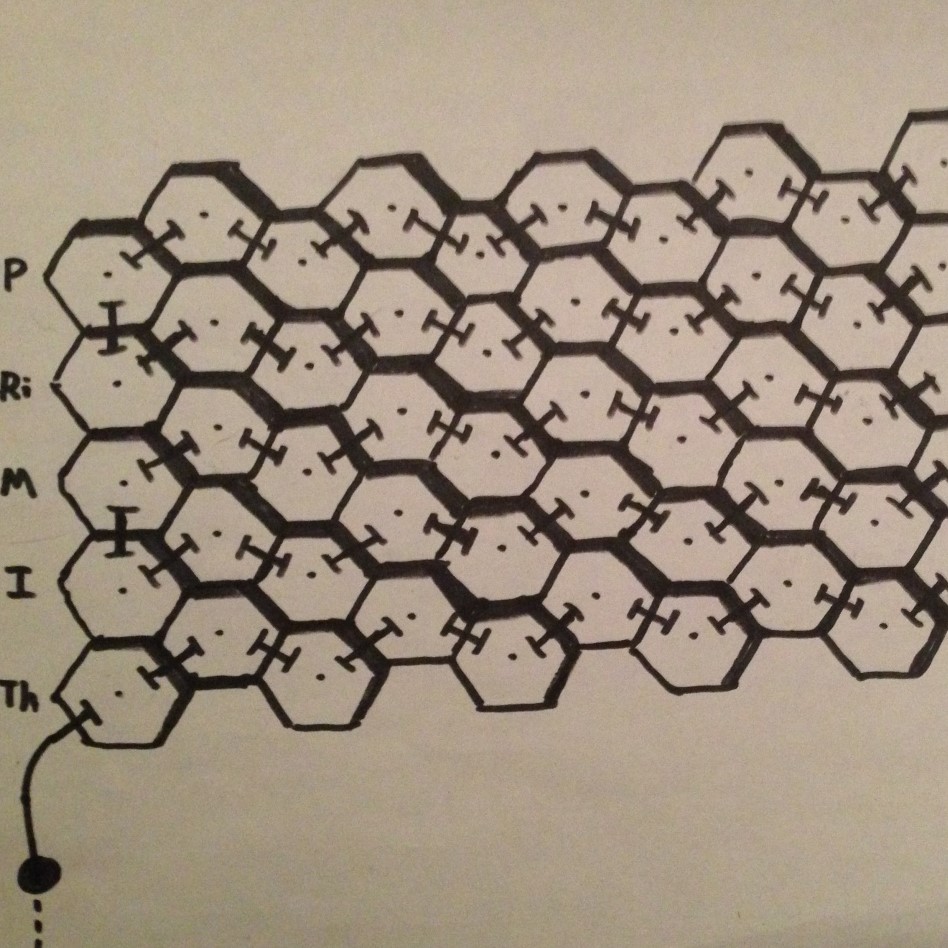 P
Ri
M
I
Th